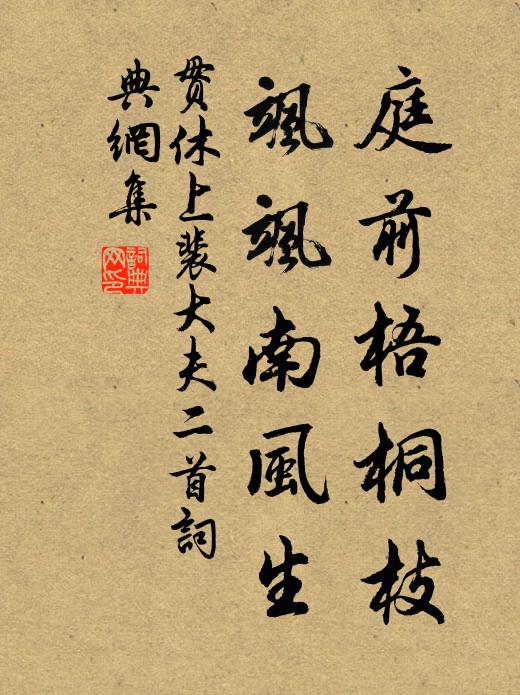 庭前梧桐枝
颯颯南風生
貫休上裴大夫二首詞
典網集
詞典
网印